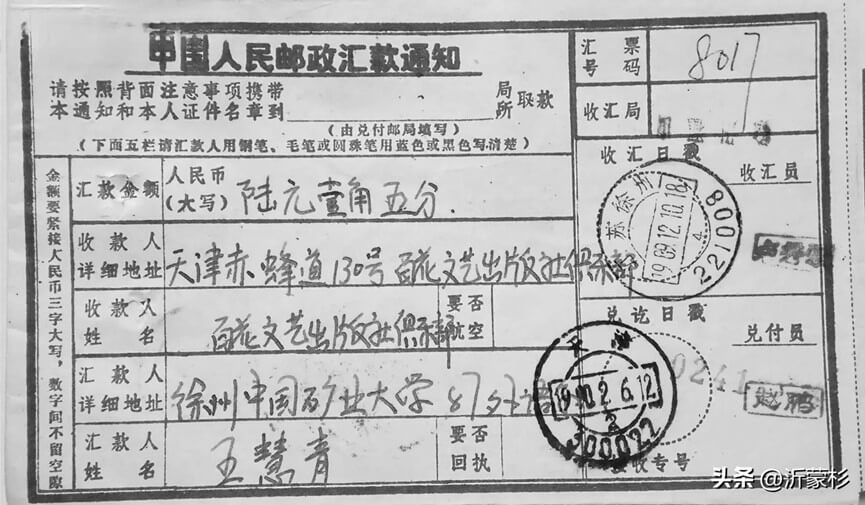 中国人民邮政汇款通知
请按照背面注意事项携带
本通知和本人证件名章到 局所 取款
(由兑付邮局填写)
(下面五栏请汇款人用钢笔、毛笔或圆珠笔用蓝色或黑色写清楚)
汇票号码 8017
收汇局
收汇日戳 收汇员
江苏徐州
19 89.12.10.18
4
221008
金额要紧接人民币三字大写,数字间不留空隙
汇款金额 人民币(大写) 陆元壹角五分.
收款人详细地址 天津赤蜂道130号百花文艺出版社俱乐部
收款人姓名 百花文艺出版社俱乐部 要否航空
汇款人详细地址 徐州中国矿业大学87
汇款人姓名 王慧青 要否回执
兑讫日戳 兑付员
天津
19 90.2.6.12
300022
0241
赵鹏
接收专号
头条 @沂蒙杉